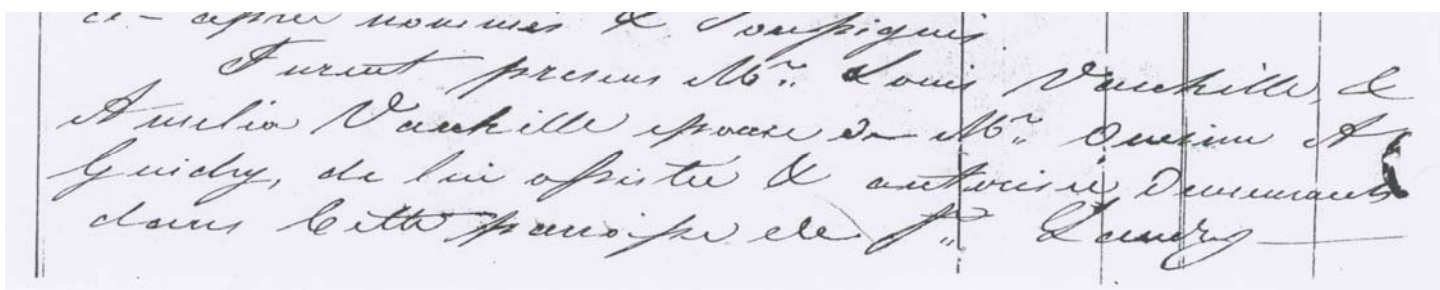 ci-après nommés & soussignés.
Furent présens Mr. Louis Vauchille, &
Amelia Vauchille épouse de Mr. Onesime A
Guidry, de lui assistée & autorisée, Demeurants
dans Cette paroisse de St. Landry